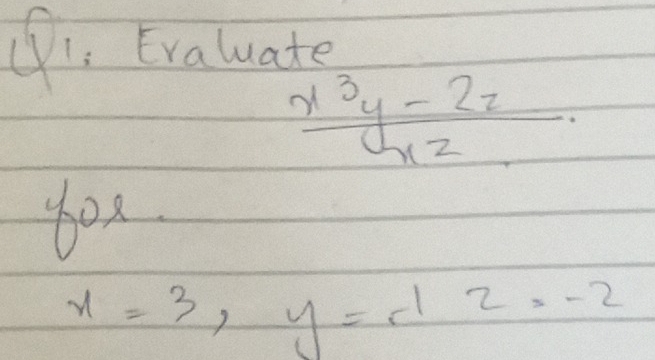 Q1: Evaluate
x³y - 2z
xz
for
x = 3, y = -1 z = -2